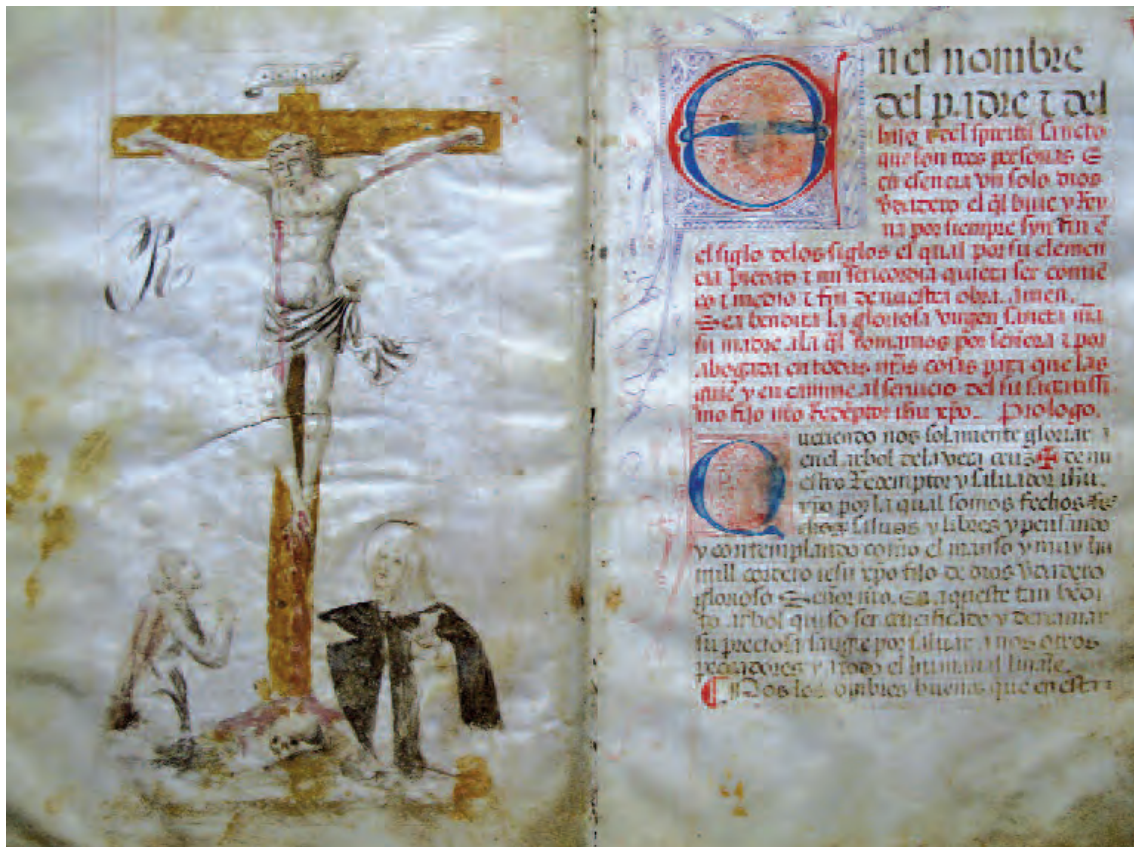 En el nombre
del padre τ del
hijo τ del spiritu sancto
que son tres personas E
en esencia vn solo dios
verdadero el ql biue y Rey
na por siempre syn fin e
el siglo delos siglos el qual por su clemen
cia piedad τ mi sericordia quiera ser comie
ço τ medio τ fin de nuestra obra. amen.
Sea bendita la gloriosa virgen sancta ma
su madre. ala ql tomamos por señora τ por
abogada en todas nras cosas para que las
guie y en camine al seruicio del su sacratissi
mo fijo nro Redeptor ihu xpo. Prologo.
Queriendo nos solamente gloriar
en el arbol dela vera cruz ✠ de nu
estro Redemptor y saluador ihu.
xpo por la qual somos fechos
saluos y libres y pensando
y contemplando como el manso y muy hu
mill cordero iesu xpo fijo de dios verdadero
glorioso Señor nro. En aqueste tan bendi
to arbol quiso ser crucificado y derramar
su preciosa sangre por saluar a nos otros
pecadores y a todo el humanal linaje.
Nos los ombres buenos que en esta